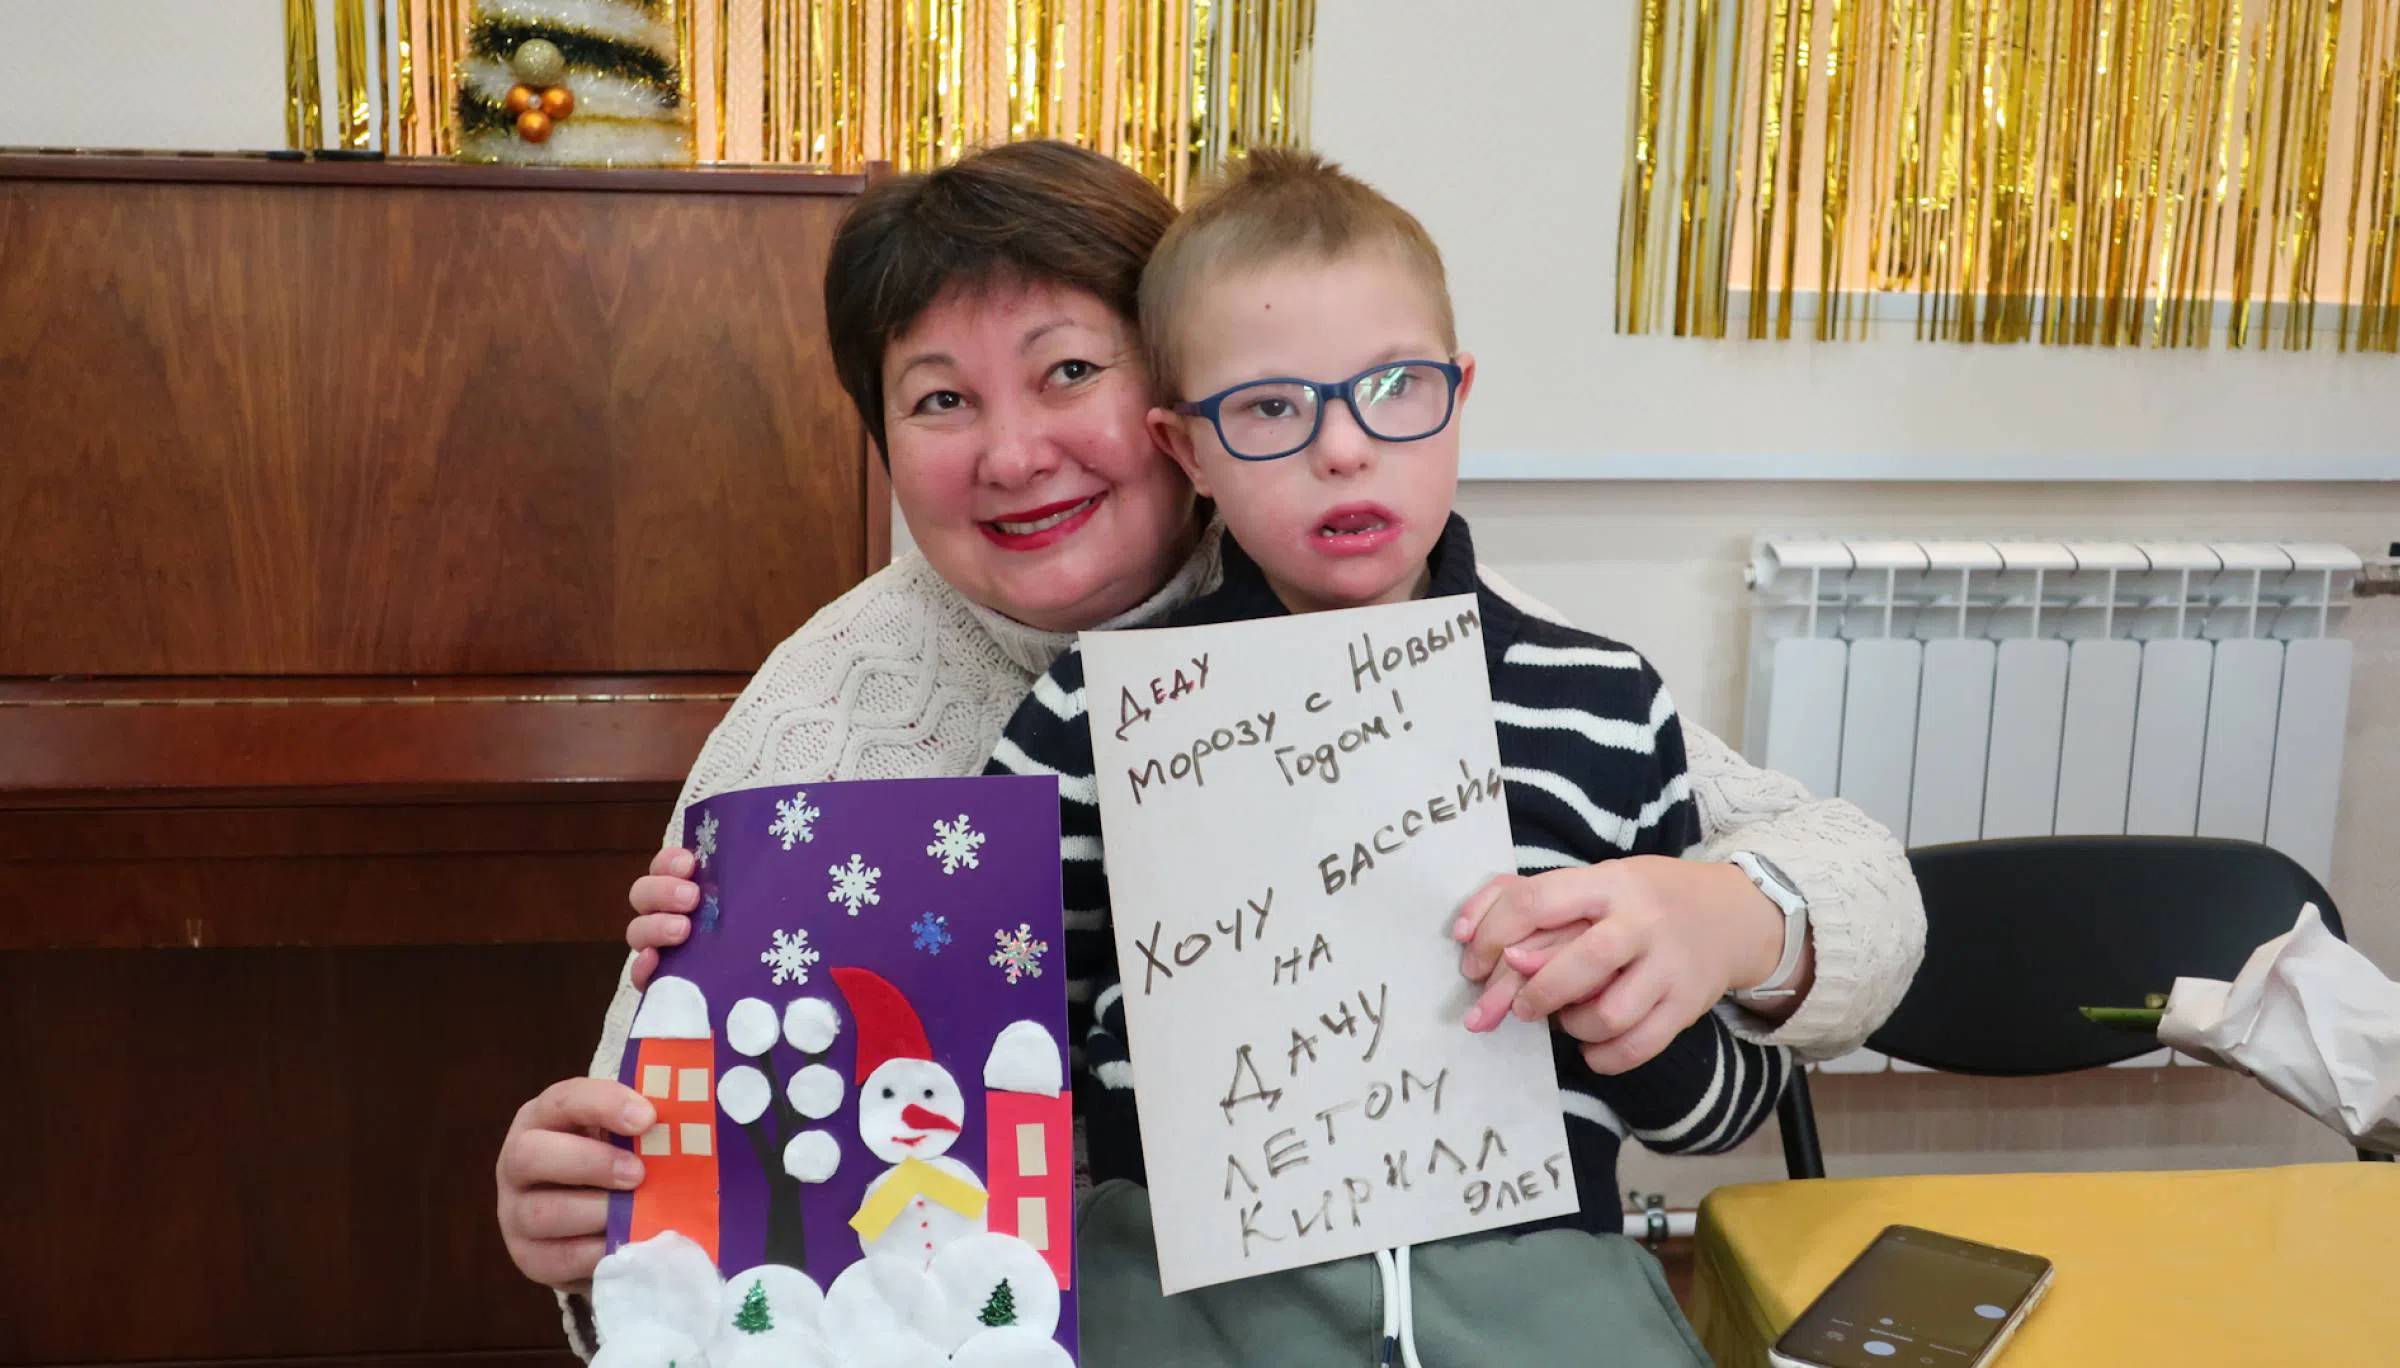 ДЕДУ
МОРОЗУ С НОВЫМ
ГОДОМ!
ХОЧУ БАССЕЙН
НА
ДАЧУ
ЛЕТОМ
КИРИЛЛ
9 ЛЕТ